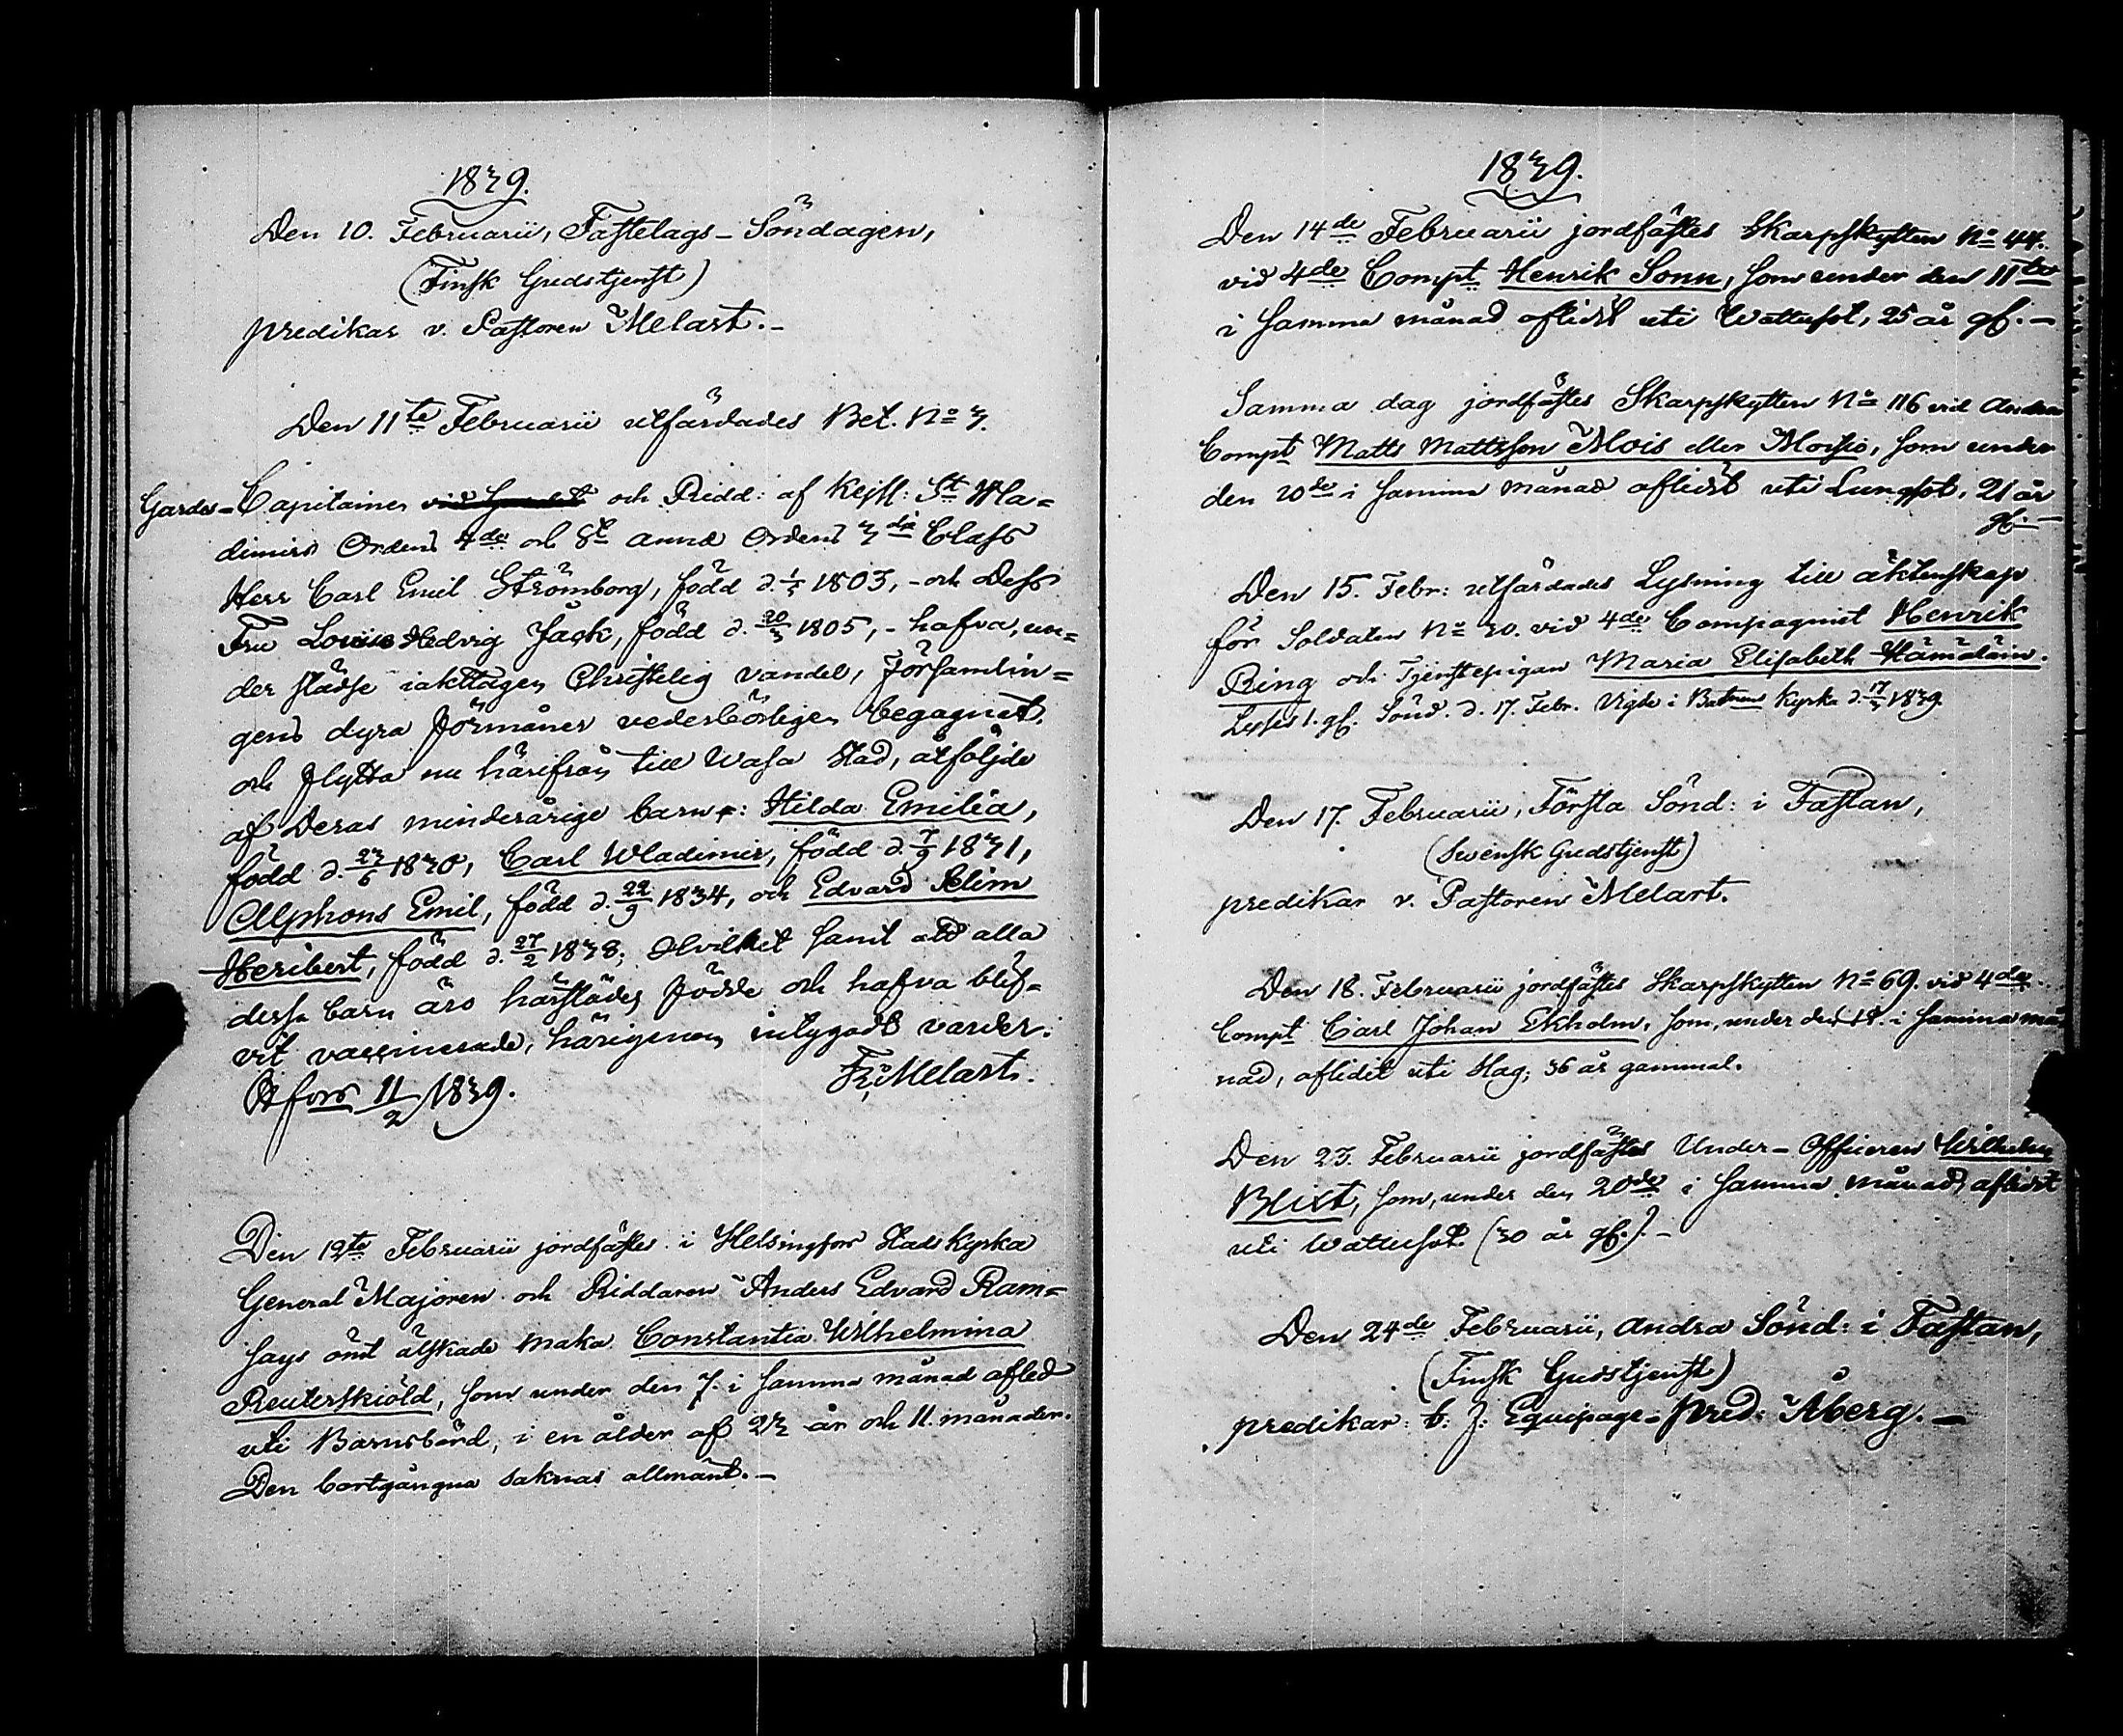 1839.
Den 10. Februarii, Fastelags-Söndagen,
(Finsk Gudstjenst)
predikar v. Pastoren Melart.-
Den 11te Februarii utfärdades Bet. No 3.
Gardes-Capitainen och Ridd: af Kejsl: St Wla=
dimirs Ordens 4de och St Annæ Ordens 3dje Class
Herr Carl Emil Strömborg, född d. 1803,- och Dess
Fru Lovisa Hedvig Jack, född d. 20/3 1805,- hafva, un=
der städse iakttagen Christelig vandel, Församlin=
gens dyra förmåner vederbörligen begagnat.
och flytta nu härifrån till Wasa Stad, åtföljde
af Deras minderårige barn: Hilda Emilia,
född d. 23/6 1830, Carl Wladimir, född d. 7/9 1831,
Alphons Emil, född d. 22/9 1834, och Edvard Selim
Heribert, född d. 27/2 1838; Hvilket samt att alla
dessa barn äro härstädes födde och hafva blif=
vit vaccinerade, härigenom intygadt varder.
Hfors 11/2 1839. Fr: Melart.
Den 12te Februarii jordfästes i Helsingfors Stads Kyrka
General Majoren och Riddaren Anders Edvard Ram=
says ömt älskade maka Constantia Wilhelmina
Reuterskiöld, som under den 7. i samma månad afled
uti Barnsbörd, i en ålder af 23 år och 11. månader.
Den bortgångna saknas allmänt.-
1839.
Den 14de Februarii jordfästes Skarpskytten No 44.
vid 4de Compt Henrik Sonn, som under den 11te
i samma månad aflidit uti Wattusot, 25 år gl.-
Samma dag jordfästes Skarpskytten No 116 vid Andra
Compt Matts Mattsson Mois eller Moisio, som under
den 10de i samma månad aflidit uti Lungsot, 21 år
gl.-
Den 15. Febr: utfärdades Lysning till äktenskap
för Soldaten No 30. vid 4de Compagniet Henrik
Ring och Tjenstepigan Maria Elisabeth
Lystes 1. g. Sönd. d. 17. Febr. Vigde i Kyrka d. 17/3 1839.
Den 17. Februarii, Första Sönd: i Fastan,
(Swensk Gudstjenst)
predikar v. Pastoren Melart.
Den 18. Februarii jordfästes Skarpskytten No 69. vid 4de
Compt Carl Johan Ekholm, som, under den 14. i samma må
nad, aflidit uti Slag, 36 år gammal.
Den 23. Februarii jordfästes Under-Officeren Wilhelm
Blixt, som, under den 20de i samma månad, aflidit
uti Wattusot. (30 år gl.).-
Den 24de Februarii, Andra Sönd: i Fastan,
(Finsk Gudstjenst)
predikar: t. f. Equipage-Pred: Åberg.-